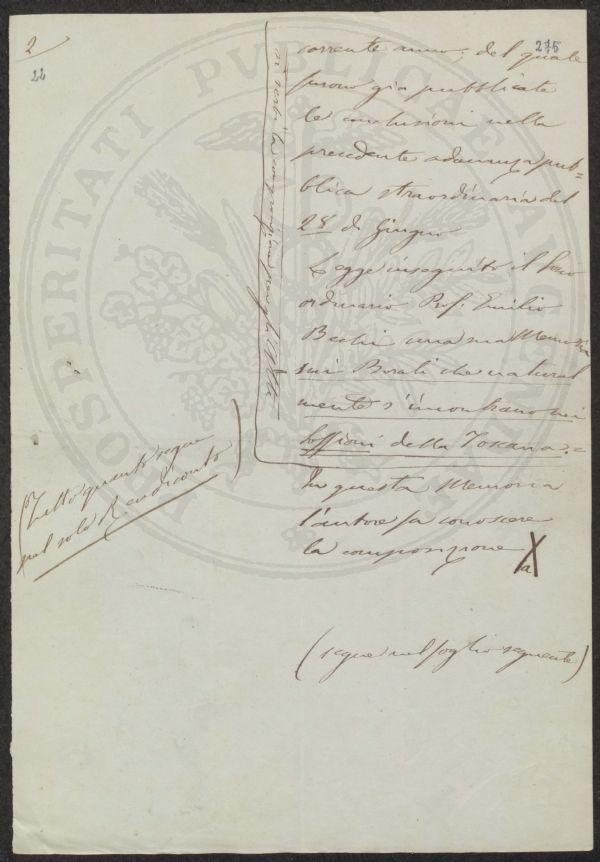 2
22
275
corrente anno, del quale
furono già pubblicate
le conclusioni nella
precedente adunanza pub=
blica straordinaria del
28 di Giugno
Legge inseguito il Socio
ordinario Prof. Emilio
Bechi una sua Memoria
sui Borati che natural
mente s'incontrano nei
soffioni della Toscana.=
In questa Memoria
l'autore fa conoscere
la composizione
a
(segue nel foglio seguente)
(Tutto quanto segue
nel solo Rendiconto)
PROSPERITATI PUBLICAE AUGENDAE